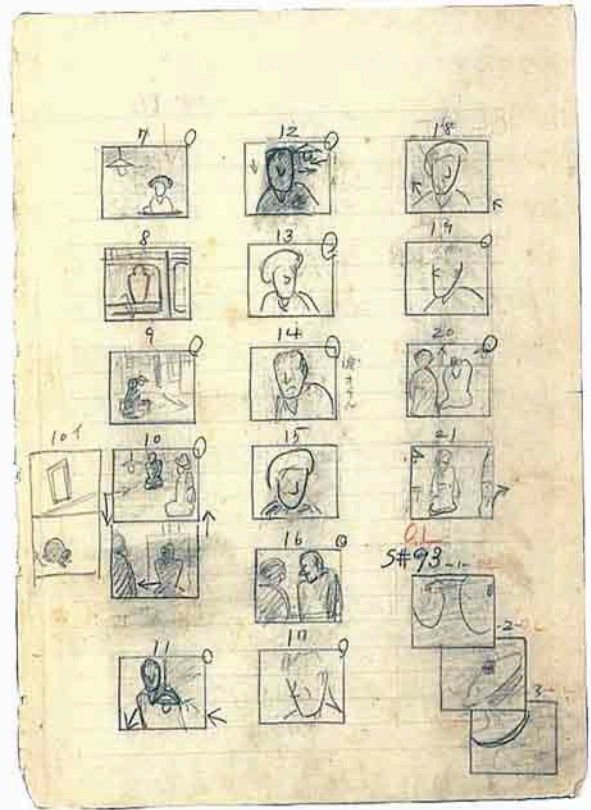 7
8
9
10イ
10
11
11
12
13
14
15
16
17
18
19
20
21
O.L
S#93
-1-
-2-
O.L
-3-